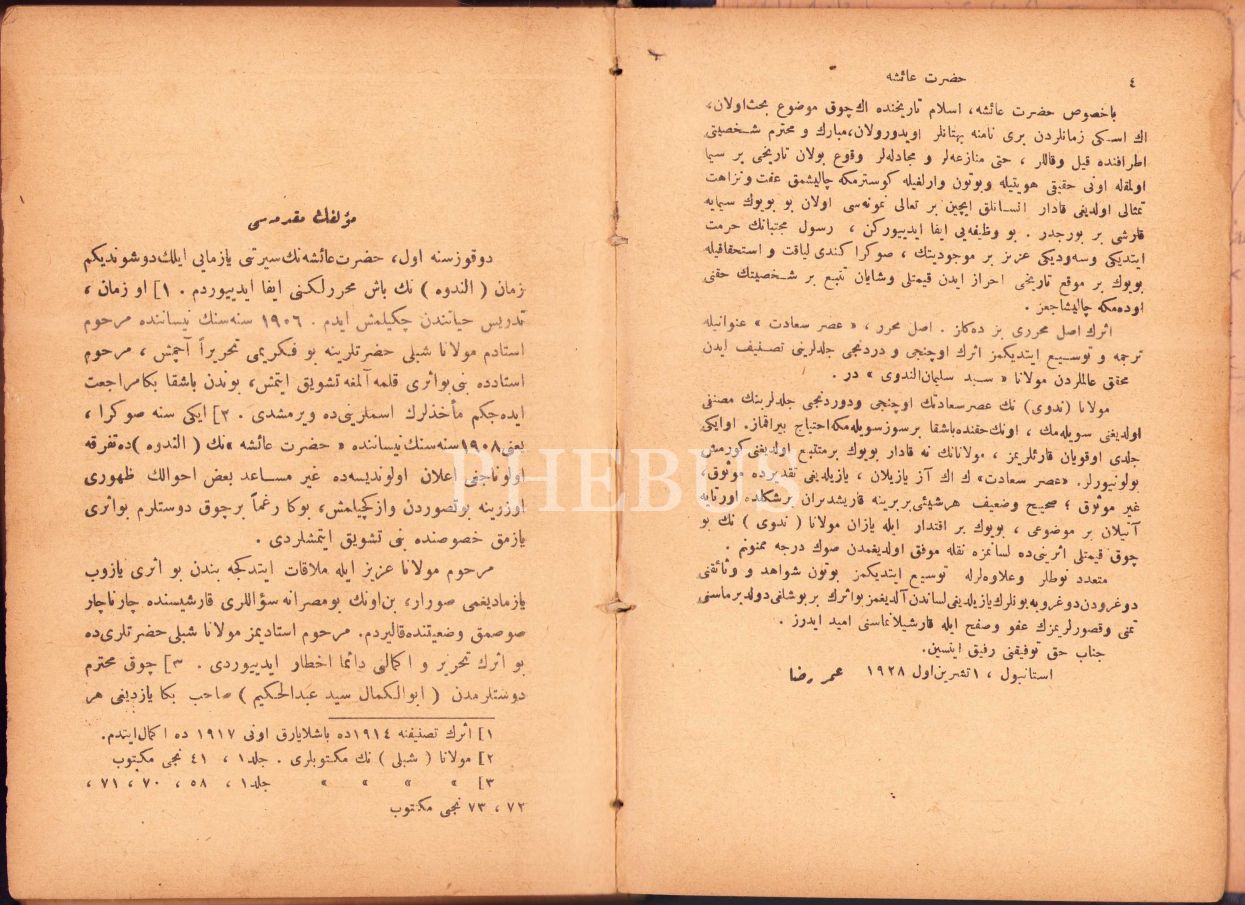 ٤
حضرت عائشه
باخصوص حضرت عائشه، اسلام تاریخنده اك چوق موضوع بحث اولان،
اك اسكی زمانلردن بری نامنه بهتانلر اویدورولان، مبارك و محترم شخصیتی
اطرافنده قیل وقاللر ، حتی منازعه‌لر و مجادله‌لر وقوع بولان تاریخی بر سیما
اولمقله اونی حقیقی هویتیله وبوتون وارلغیله كوسترمكه چالیشمق عفت ونزاهت
تمثالی اولدیغی قادار انسانلق ایچین بر تعالی نمونه‌سی اولان بو بویوك سیمایه
قارشی بر بورجدر . بو وظیفه‌یی ایفا ایدییوركن ، رسول مجتبانك حرمت
ایتدیكی وسه‌ودیكی عزیز بر موجودیتك ، صوكرا كندی لیاقت و استحقاقیله
بویوك بر موقع تاریخی احراز ایدن قیمتلی وشایان تتبع بر شخصیتك حقنی
اوده‌مكه چالیشاجغز .
اثرك اصل محرری بز ده‌كلز . اصل محرر ، « عصر سعادت » عنوانیله
ترجمه و توسیع ایتدیكمز اثرك اوچنجی و دردنجی جلدلرینی تصنیف ایدن
محقق عالملردن مولانا « سید سلیمان الندوی » در .
مولانا (ندوی) نك عصر سعادتك اوچنجی ودوردنجی جلدلرینك مصنفی
اولدیغی سویله‌مك ، اونك حقنده باشقا بر سوز سویله‌مكه احتیاج بیراقماز. اوایكی
جلدی اوقویان قارئلریمز ، مولانانك نه قادار بویوك بر متتبع اولدیغی كورمش
بولونیورلر. «عصر سعادت» ك اك آز یازیلان ، یازیلدیغی تقدیرده موثوق،
غیر موثوق ؛ صحیح وضعیف هرشیئی بربرینه قاریشدیران برشكلده اورتایه
آتیلان بر موضوعی ، بویوك بر اقتدار ایله یازان مولانا ( ندوی ) نك بو
چوق قیمتلی اثرینی ده لسانمزه نقله موفق اولدیغمدن صوك درجه ممنونم .
متعدد نوطلر وعلاوه‌لرله توسیع ایتدیكمز بوتون شواهد و وثائقنی
دوغرودن دوغرویه بونلرك یازیلدیغی لساندن آلدیغمز بواثرك بر بوشلغی دولدیرماسنی
تمنی وقصورلریمزك عفو وصفح ایله قارشیلانماسنی امید ایدرز .
جناب حق توفیقنی رفیق ایتسین.
استانبول ، ١ تشرین اول ١٩٢٨ عمر رضا
مؤلفك مقدمه‌سی
دوقوز سنه اول، حضرت عائشه‌نك سیرتنی یازمایی ایلك دوشوندیكم
زمان ( الندوه ) نك باش محررلكنی ایفا ایدییوردم . ١] او زمان ،
تدریس حیاتندن چكیلمش ایدم . ١٩٠٦ سنه‌سنك نیساننده مرحوم
استادم مولانا شبلی حضرتلرینه بو فكریمی تحریراً آچمش ، مرحوم
استادده بنی بواثری قلمه آلمغه تشویق ایتمش، بوندن باشقا بكا مراجعت
ایده‌جكم مأخذلرك اسملرینی ده ویرمشدی . ٢] ایكی سنه صوكرا ،
یعنی ١٩٠٨ سنه‌سنك نیساننده « حضرت عائشه »نك ( الندوه )ده تفرقه
اولوناجغی اعلان اولوندیسه‌ده غیر مساعد بعض احوالك ظهوری
اوزرینه بوتصوردن وازكچیلمش، بوكا رغماً برچوق دوستلرم بواثری
یازمق خصوصنده بنی تشویق ایتمشلردی .
مرحوم مولانا عزیز ایله ملاقات ایتدكجه بندن بو اثری یازوب
یازمادیغمی صورار، بن اونك بومصرانه سؤاللری قارشیسنده چارناچار
صوصمق وضعیتنده قالیردم. مرحوم استادیمز مولانا شبلی حضرتلری ده
بو اثرك تحریر و اكمالی دائما اخطار ایدییوردی . ٣] چوق محترم
دوستلرمدن ( ابوالكمال سید عبدالحكیم ) صاحب بكا یازدیغی هر
١] اثرك تصنیفنه ١٩١٤ ده باشلایارق اونی ١٩١٧ ده اكمال ایتدم.
٢] مولانا ( شبلی ) نك مكتوبلری . جلد ١ ، ٤١ نجی مكتوب
٣] » » » » جلد ١ ، ٥٨ ، ٧٠ ، ٧١ ،
٧٢ ، ٧٣ نجی مكتوب
PHEBUS